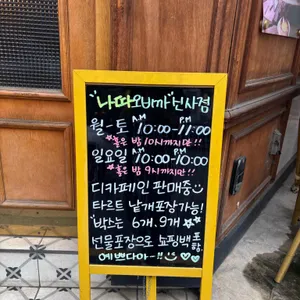 "나따오비까"신사점
월-토 AM 10:00-PM 11:00
*홀은 밤 10시까지만!!
일요일 AM 10:00-PM 10:00
*홀은 밤 9시까지만!!
디카페인 판매중
타르트 낱개포장가능!
"박스는 6개,9개
선물포장으로 쇼핑백 포함
예쁘다아-!!